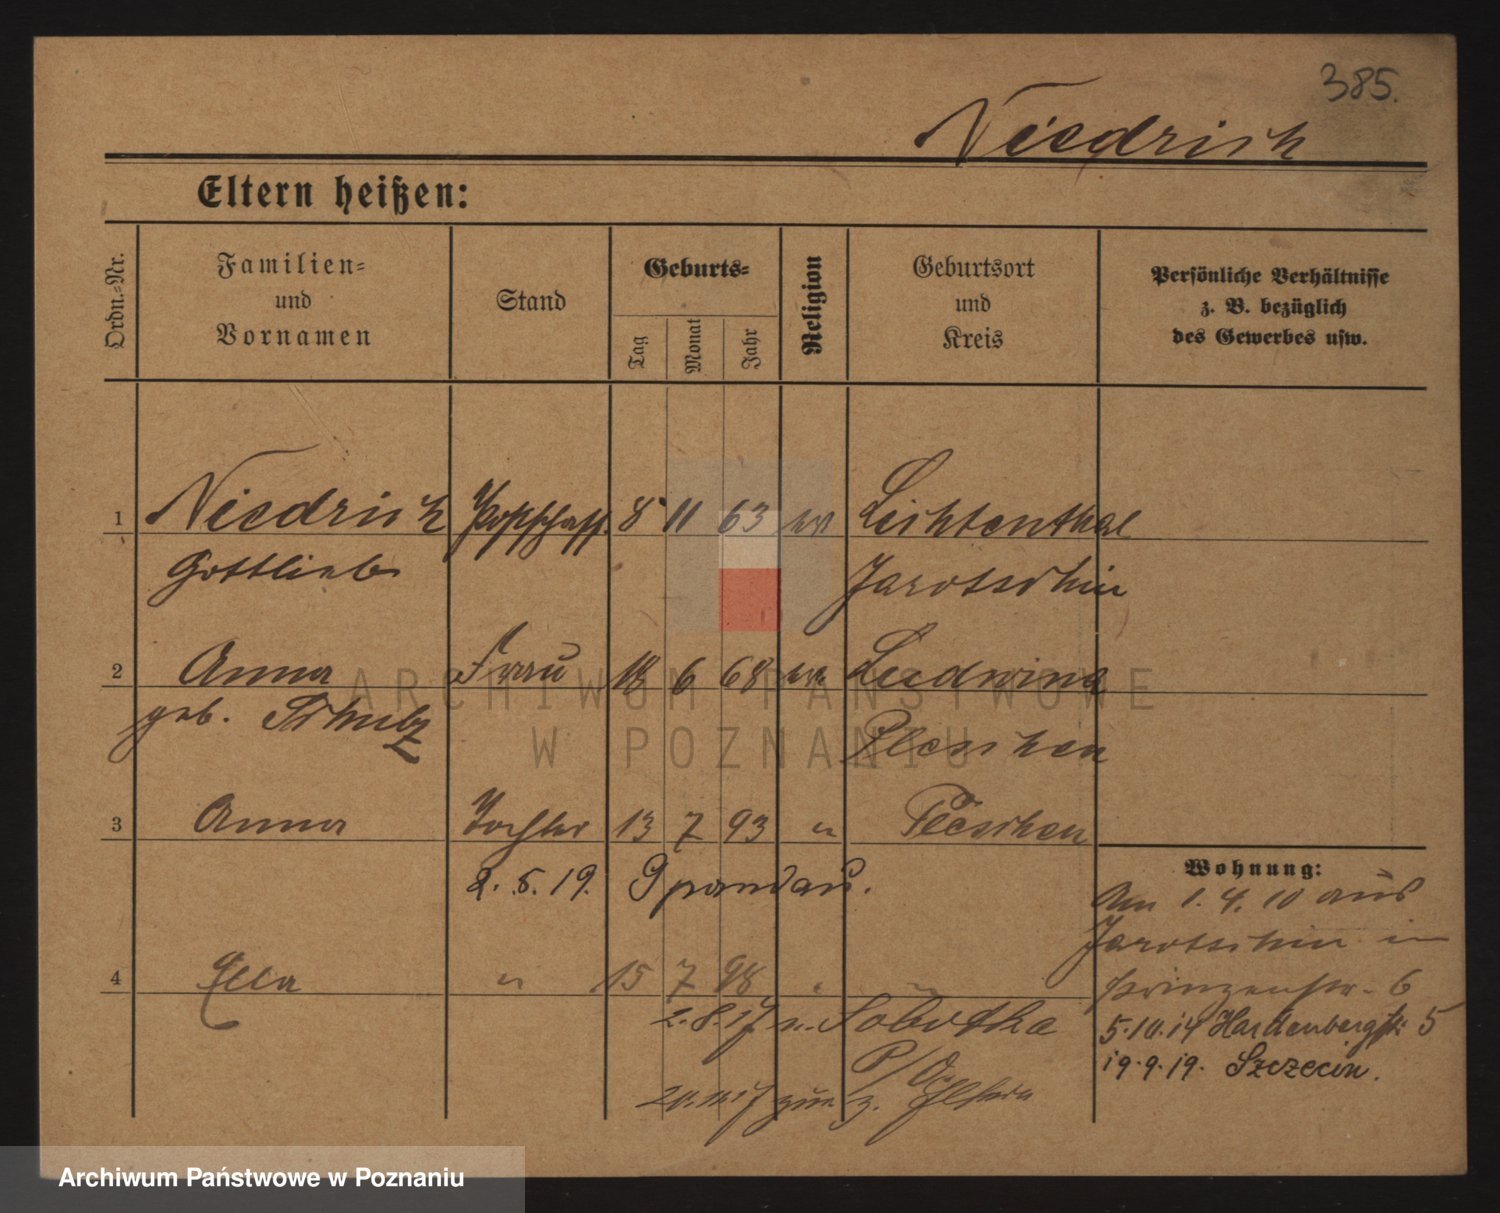 385.
Niedrich
Eltern heißen:
Ordn.-Nr.
Familien-
und
Vornamen
Stand
Geburts-
Tag
Monat
Jahr
Religion
Geburtsort
und
Kreis
Persönliche Verhältnisse
z. B. bezüglich
des Gewerbes usw.
1 Niedrich Postschaff. 8 11 63 ev Lichtenthal
Gottlieb Jarotschin
2 Anna Frau 18 6 68 ev. Ludwina
geb. Schubz Pleschen
3 Anna Tochter 13 7 93 " Pleschen
2. 5. 19. Spandau.
4 Ella " 15 7 98 " "
2. 8. 17 n. Sobotka
P/
z. Eltern
Wohnung:
Am 1. 4. 10 aus
Jarotschin in
Prinzenstr. 6
5.10.14 Hardenbergstr 5
19.9.19. Szczecin.
ARCHIWUM PAŃSTWOWE
W POZNANIU
Archiwum Państwowe w Poznaniu